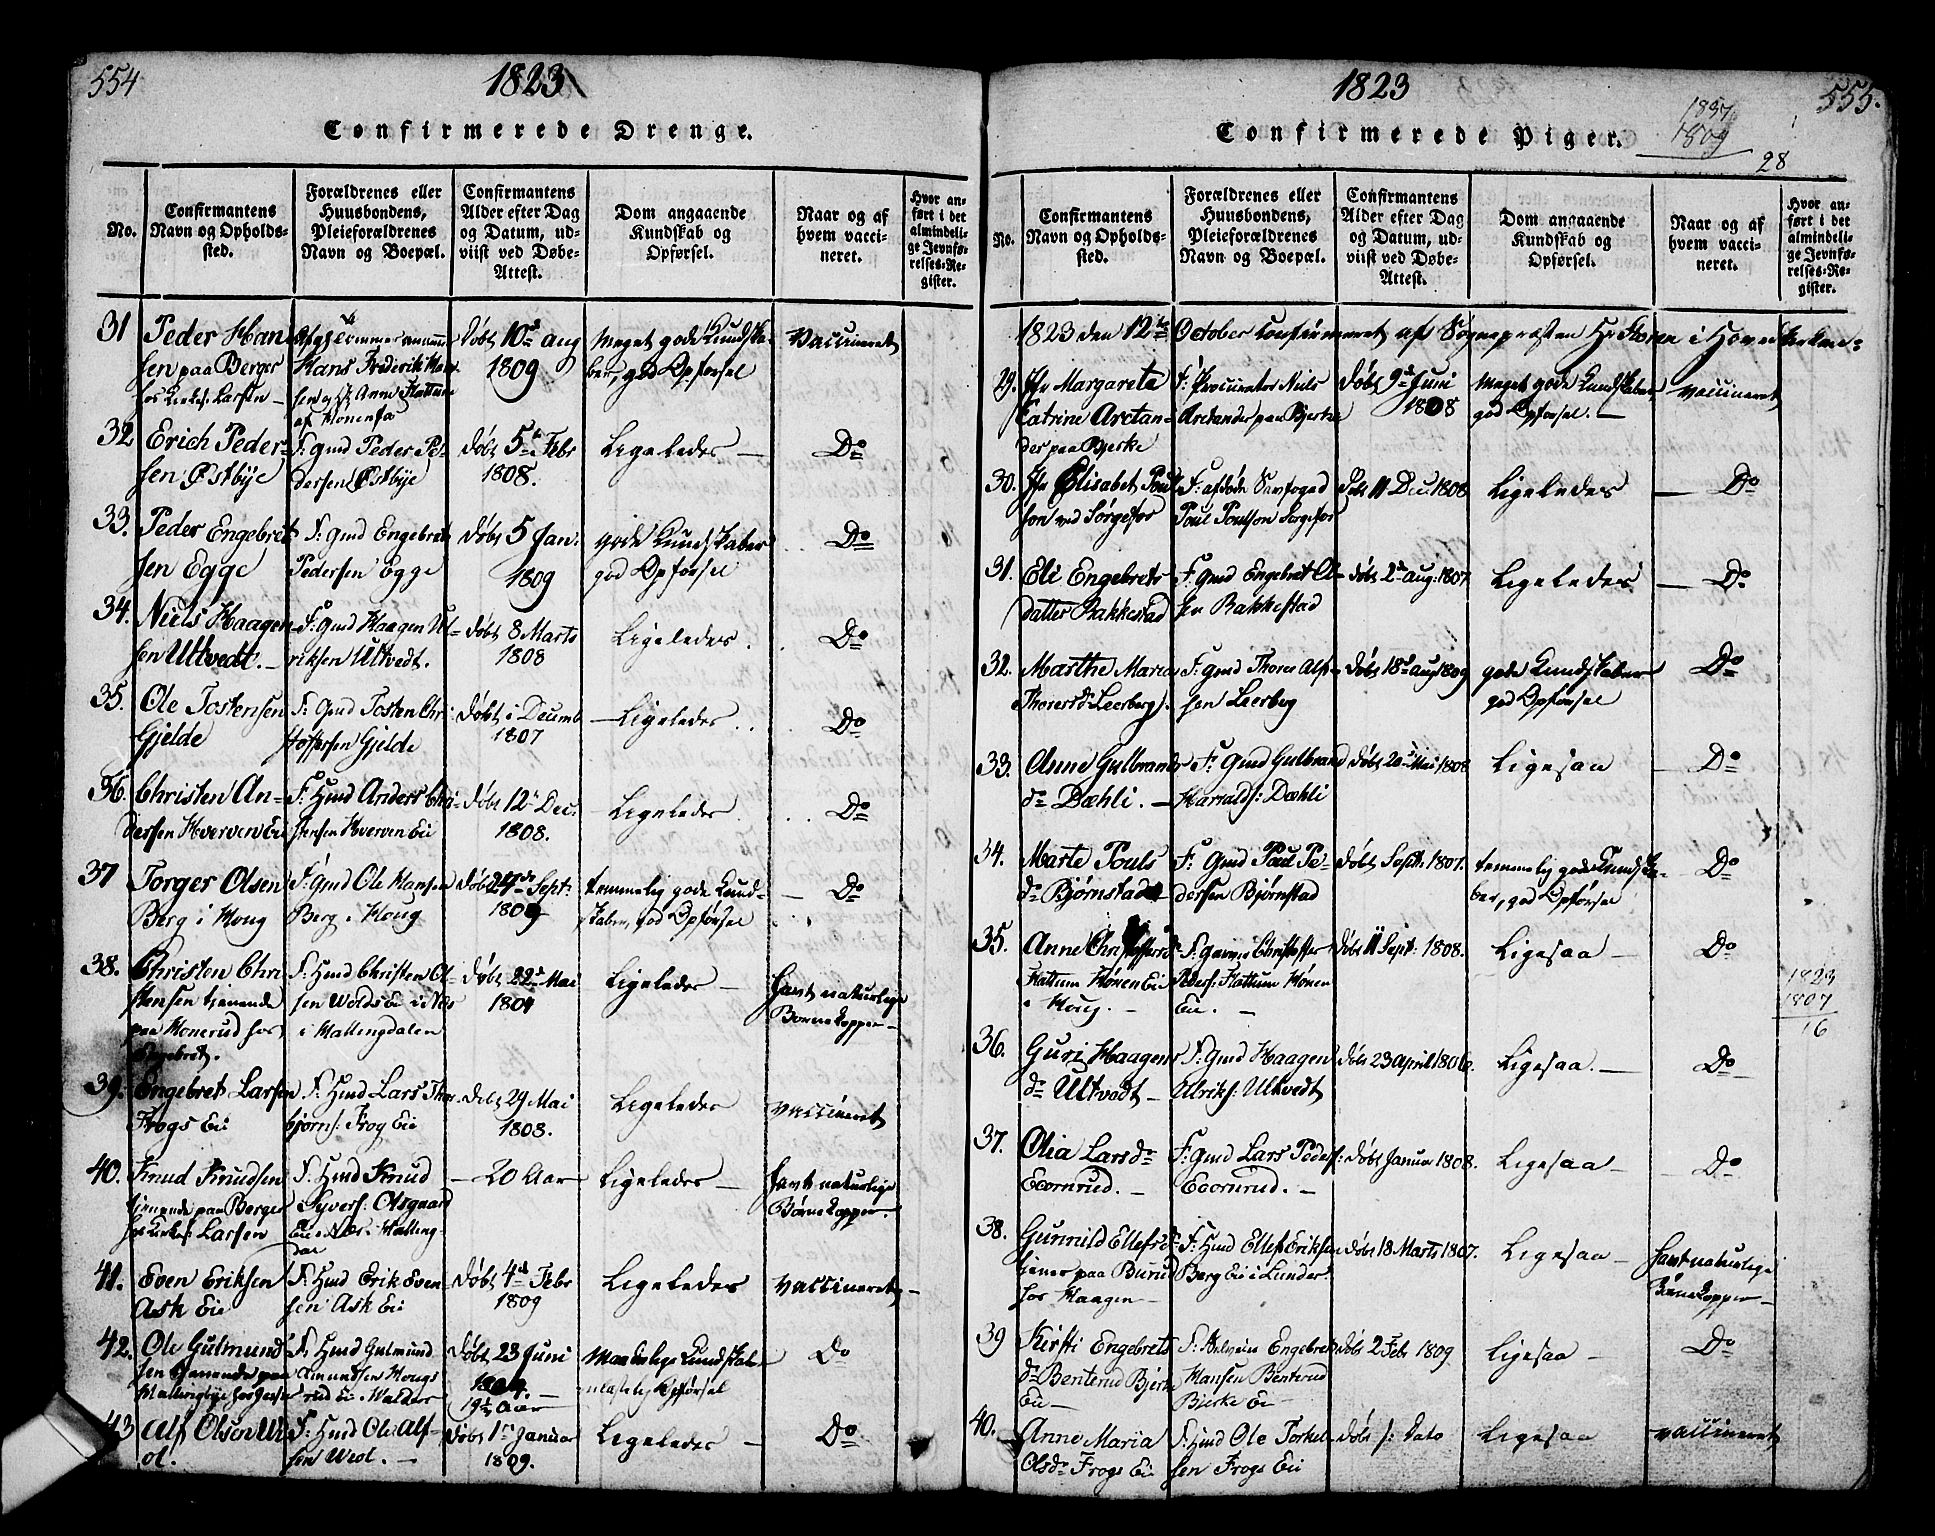 554
1823
Confirmerede Drenge.
No.
Confirmantens
Navn og Opholds-
sted.
Forældrenes eller
Huusbondens,
Pleieforældrenes
Navn og Boepæl.
Confirmantens
Alder efter Dag
og Datum, ud-
viist ved Døbe-
Attest.
Dom angaaende
Kundskab og
Opførsel.
Naar og af
hvem vacci-
neret.
Hvor an-
ført i det
almindeli-
ge Jevnfø-
relses-Re-
gister.
31
Peder Han
sen paa Berger
hos Kirkes: Larsen
Hans Frederik Han
af Hønenfos
Døbt 10d aug
1809
Meget gode Kundska-
ber, god Opførsel
Vaccineret
32
Erich Peder-
sen Østbye
F: Gmd Peder Pe-
dersen Østbye
Døbt 5te Febr
1808.
Ligeledes
Do
33.
Peder Engebret
sen Egge
F: Gmd Engebret
Pedersen Egge
Døbt 5 Jan:
1809
gode Kundskaber
god Opførsel
Do
34.
Niels Haagen
sen Ultvedt.
F: Gmd Haagen Ul-
riksen Ultvedt.
Døbt 8 Marts
1808
Ligeledes.
Do
35.
Ole Tostensen
Gjelde
F: Gmd Tosten Chri
stoffersen Gjelde
Døbt i Decemb
1807
Ligeledes
Do
36.
Christen An-
dersen Hverven Eie
F: Hmd Anders Chri-
stensen Hverven Eie
Døbt 12te Dec:
1808.
Ligeledes
Do
37
Torger Olsen
Berg i Houg
F: Gmd Ole Hansen
Berg i Houg
Døbt 24de Sept:
1809
temmelig gode Kund-
skaber, god Opførsel
Do
38.
Christen Chri
stensen tjenende
paa Honerud hos
Engebret.
F: Hmd Christen Ol-
sen Wolds Eie i Næs
i Hallingdalen
Døbt 22d Mai
1804
Ligeledes
havt naturlige
Børnekopper
39.
Engebret Larsen
Frogs Eie
F: Hmd Lars Thor
bjørns: Frog Eie
Døbt 29 Mai
1808.
Ligeledes
vaccineret
40.
Knud Knudsen
tjenende paa Berger
hos Kirkes: Larsen
F: Hmd Knud
Syvers: Olsgaard
Eie i Næs i Halling-
dal
20 Aar
Ligeledes
havt naturlige
Børnekopper
41.
Even Eriksen
Ask Eie
F: Hmd Erik Even
sen Ask Eie
Døbt 4de Febr
1809
Ligeledes
vaccineret
42.
Ole Gulmund
sen tjenende paa
F: Hmd Gulmund
Amundsen Hougs
rud Eie i Walders
Døbt 23 Juni
1804.
19½ Aar
Maadelige Kundskaber
ulastelig Opførsel
Do
43
Alf Olsen Wo
ol.
F: Hmd Ole Alf-
sen Wol.
Døbt 1ste Januar
1809.
Ligeledes
Do
555.
1823
Confirmerede Piger.
1837
1809
28
No.
Confirmantens
Navn og Opholds-
sted.
Forældrenes eller
Huusbondens,
Pleieforældrenes
Navn og Boepæl.
Confirmantens
Alder efter Dag
og Datum, ud-
viist ved Døbe-
Attest.
Dom angaaende
Kundskab og
Opførsel.
Naar og af
hvem vacci-
neret.
Hvor an-
ført i det
almindeli-
ge Jevnfø-
relses-Re-
gister.
1823 den 12te October Confirmeret af Sognepræsten Hr Steen i Hovedkirken:
29.
Jfr Margareta
Catrine Arctan-
der paa Bjerke
F: Procurator Niels
Arctander paa Bjerke
Døbt 9d Juni
1808
Meget gode Kundskaber
god Opførsel.
vaccineret
30.
Jfr Elisabet Poul
son ved Sørgefos
F: afdøde Samfoged
Poul Poulson Sørgefos
Døbt 11 Dec: 1808
Ligeledes
Do
31.
Eli Engebrets
datter Bakkestad
F: Gmd Engebret Ol-
sen Bakkestad
Døbt 2d Aug: 1807.
Ligeledes
Do
32.
Marthe Maria
Thoresd: Leerberg.
F: Gmd Thores Alf-
sen Leerberg
Døbt 18d Aug 1809
gode Kundskaber
god Opførsel
Do
33.
Anne Gulbrands
dr Dæhli.
F: Gmd Gulbrand
Harralds: Dæhli
Døbt 20d Mai 1808
Ligesaa
Do
34.
Marte Pouls
dr Bjørnstad
F: Gmd Poul Pe-
dersen Bjørnstad
Døbt Septr. 1807.
temmelig gode Kundska-
ber, god Opførsel
Do
35.
Anne Christoffersd
Hattum Hønen Eie
i Houg.
Peders: Hattum Hønen
Eie.
Døbt 11 Sept: 1808.
Ligesaa
Do
1823
1807
16
36.
Guri Haagens
dr Ultvedt
F: Gmd Haagen
Ulriks: Ultvedt
Døbt 23 April 1806.
Ligesaa.
Do
37.
Olia Larsdr
Ecornrud.
F: Gmd Lars Peders:
Ecornrud.
Døbt Januar 1808.
Ligesaa
Do
38.
Gunnild Ellefsd
tjener paa Burud
hos Haagen
F: Hmd Ellef Eriksen
Berg Eie i Lunder.
Døbt 18 Marts 1807.
Ligesaa
havt naturlige
Børnekopper
39
Kirsti Engebrets
dr Benterud Bjerke
Eie
Hansen Benterud
Bjerke Eie
Døbt 2 Febr 1809
Ligesaa
Do
40.
Anne Maria
Olsdr Frogs Eie
F: Hmd Ole Torkel-
sen Frogs Eie
Døbt s: Dato
Ligesaa
vaccineret